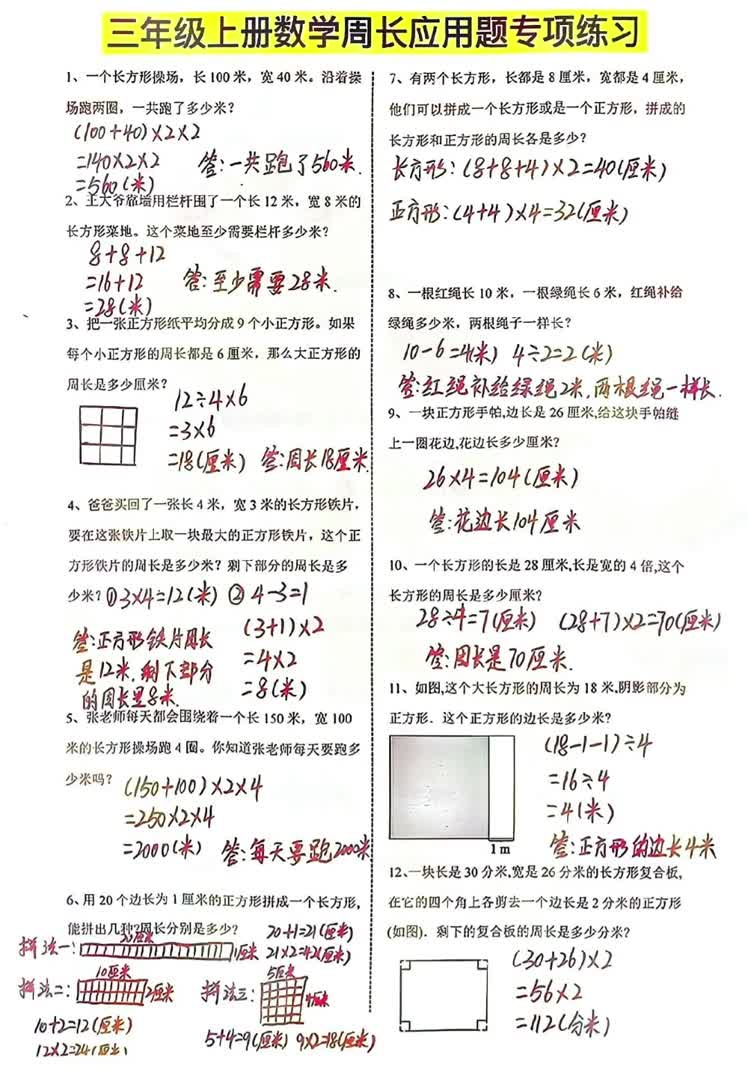 三年级上册数学周长应用题专项练习
1、一个长方形操场，长100米，宽40米。沿着操
场跑两圈，一共跑了多少米？
(100+40)×2×2
=140×2×2
=560(米)
答:一共跑了560米.
2、王大爷靠墙用栏杆围了一个长12米，宽8米的
长方形菜地。这个菜地至少需要栏杆多少米？
8+8+12
=16+12
=28(米)
答:至少需要28米.
3、把一张正方形纸平均分成9个小正方形。如果
每个小正方形的周长都是6厘米，那么大正方形的
周长是多少厘米？
12÷4×6
=3×6
=18(厘米) 答:周长18厘米
4、爸爸买回了一张长4米，宽3米的长方形铁片，
要在这张铁片上取一块最大的正方形铁片，这个正
方形铁片的周长是多少米？剩下部分的周长是多
少米？①3×4=12(米) ②4-3=1
(3+1)×2
=4×2
=8(米)
答:正方形铁片周长
是12米.剩下部分
的周长是8米.
5、张老师每天都会围绕着一个长150米，宽100
米的长方形操场跑4圈。你知道张老师每天要跑多
少米吗？
(150+100)×2×4
=250×2×4
=2000(米) 答:每天要跑2000米
6、用20个边长为1厘米的正方形拼成一个长方形，
能拼出几种?周长分别是多少？
20+1=21(厘米)
21×2=42(厘米)
拼法一: 20厘米 1厘米
拼法二: 10厘米 2厘米
10+2=12(厘米)
12×2=24(厘米)
拼法三: 5厘米 4厘米
5+4=9(厘米) 9×2=18(厘米)
7、有两个长方形，长都是8厘米，宽都是4厘米，
他们可以拼成一个长方形或是一个正方形，拼成的
长方形和正方形的周长各是多少？
长方形:(8+8+4)×2=40(厘米)
正方形:(4+4)×4=32(厘米)
8、一根红绳长10米，一根绿绳长6米，红绳补给
绿绳多少米，两根绳子一样长？
10-6=4(米) 4÷2=2(米)
答:红绳补给绿绳2米.两根绳一样长.
9、一块正方形手帕,边长是26厘米,给这块手帕缝
上一圈花边,花边长多少厘米？
26×4=104(厘米)
答:花边长104厘米
10、一个长方形的长是28厘米,长是宽的4倍,这个
长方形的周长是多少厘米？
28÷4=7(厘米) (28+7)×2=70(厘米)
答:周长是70厘米.
11、如图,这个大长方形的周长为18米,阴影部分为
正方形．这个正方形的边长是多少米?
(18-1-1)÷4
=16÷4
=4(米)
答:正方形的边长4米
1m
12、一块长是30分米,宽是26分米的长方形复合板,
在它的四个角上各剪去一个边长是2分米的正方形
(如图)．剩下的复合板的周长是多少分米？
(30+26)×2
=56×2
=112(分米)